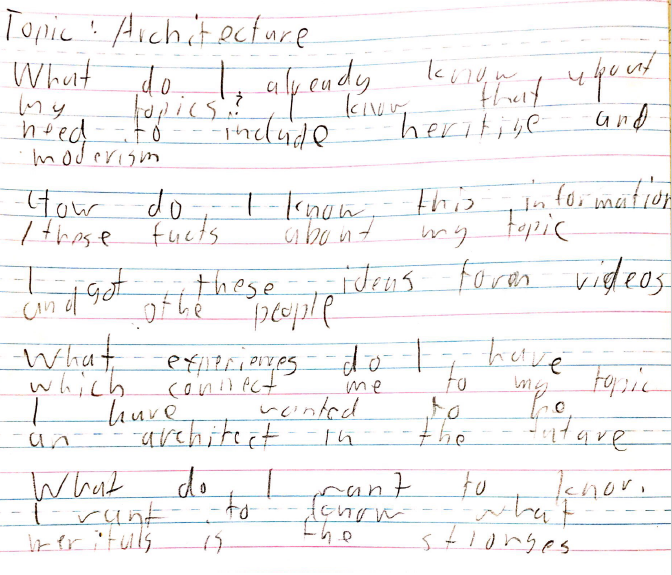 Topic : Architecture
What do I already know about
my topics? I know that
need to include heritige and
moderism
How do I know this information
/ those facts about my topic
I got these ideas form videos
and othe people
What experienves do I have
which connect me to my topic
I have wanted to be
an architect in the future
What do I want to know.
I want to know what
merituls is the stronges